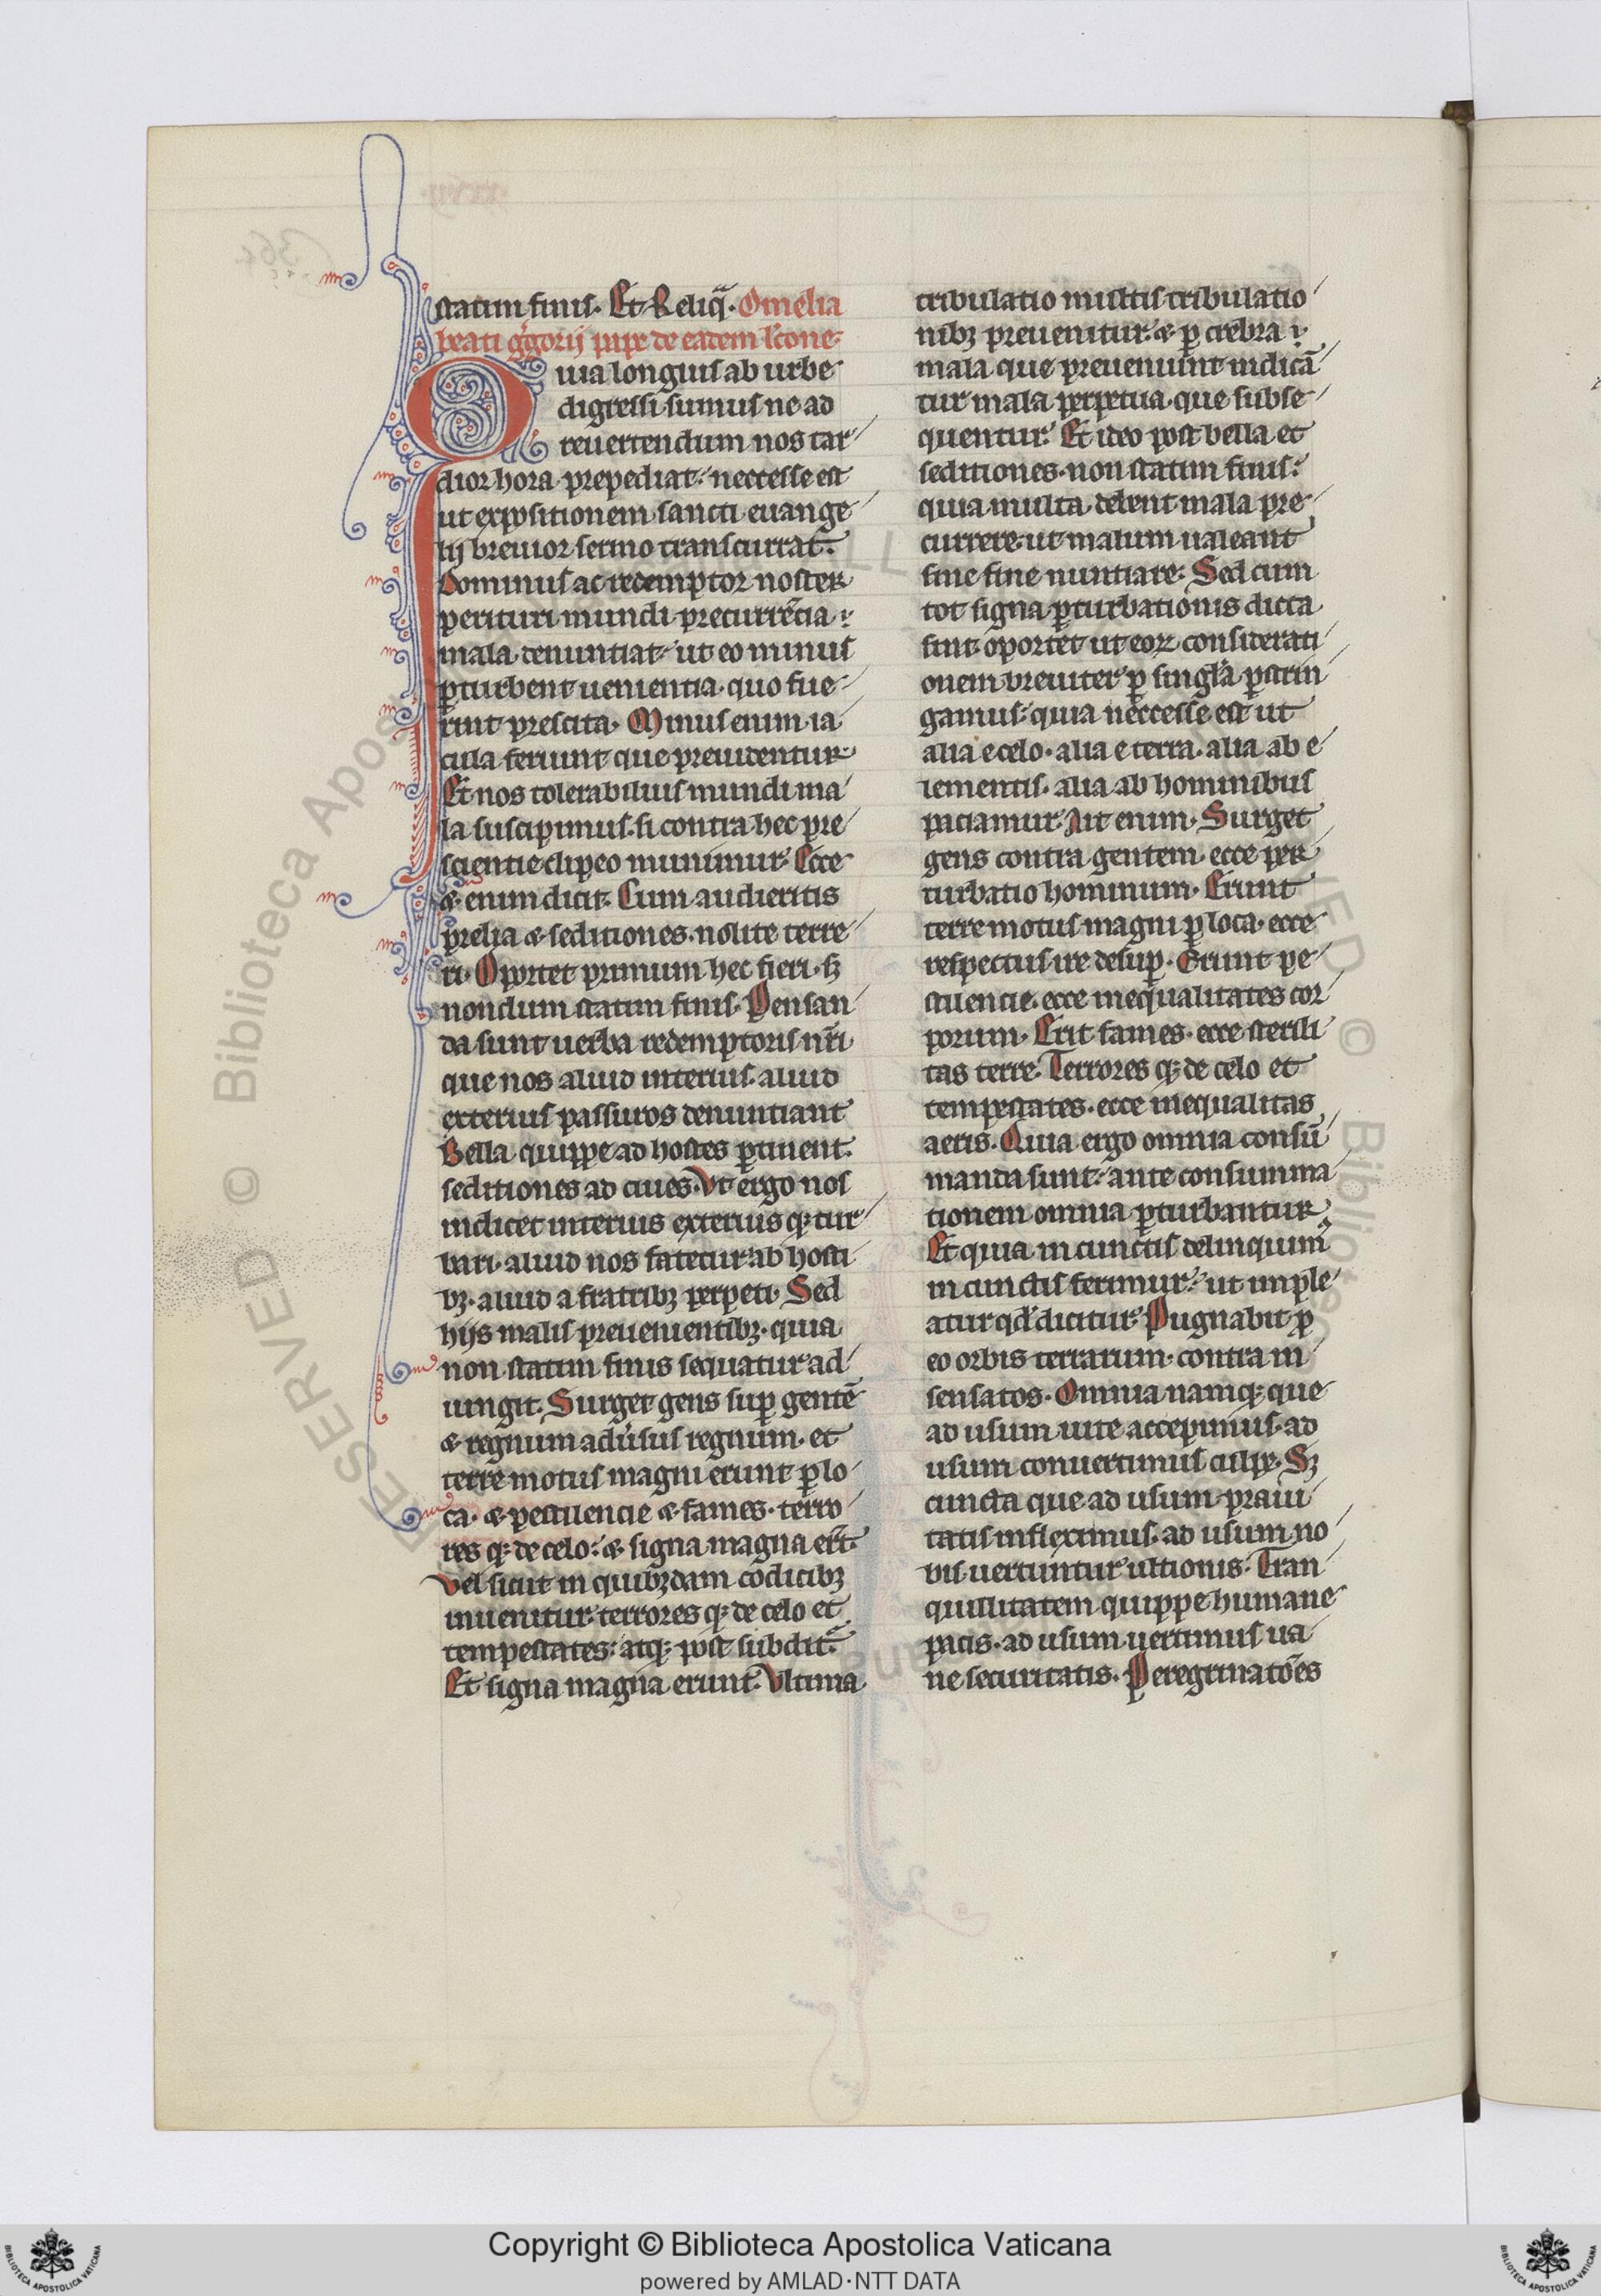 statim finis. Et Reliq̃. Omelia
beati g̃gorij pape de eadem lc̃one.
Quia longius ab urbe
digressi sumus ne ad
reuertendum nos tar
dior hora prepediat. neccesse est
ut expositionem sancti euange
lij breuior sermo transcurrat.
Dominus ac redemptor noster
perituri mundi precurrẽcia
mala denuntiat. ut eo minus
ꝑturbent uenientia. quo fue
rint prescita. Minus enim ia
cula feriunt que preuidentur.
Et nos tolerabilius mundi ma
la suscipimus. si contra hec pre
scientie clipeo munimur. Ecce
⁊ enim dicit. Cum audieritis
prelia ⁊ seditiones. nolite terre
ri. Oportet primum hec fieri. sꝫ
nondum statim finis. Pensan
da sunt uerba redemptoris nr̃i
que nos aliud interius. aliud
exterius passuros denuntiant
Bella quippe ad hostes ꝑtinent.
seditiones ad ciues. Vt ergo nos
indicet interius exterius qꝫ tur
bari. aliud nos fatetur ab hosti
bꝫ. aliud a fratribꝫ perpeti. Sed
hijs malis preuenientibꝫ. quia
non statim finis sequatur ad
iungit. Surget gens suꝑ gentẽ
⁊ regnum adũsus regnum. et
terre motus magni erunt ꝑ lo
ca. ⁊ pestilencie ⁊ fames. terro
res qꝫ de celo. ⁊ signa magna er̃t.
Vel sicut in quibꝫdam codicibꝫ
inuenitur. terrores qꝫ de celo et
tempestates. atqꝫ post subdit̃.
Et signa magna erunt. Vltima
tribulatio multis tribulatio
nibꝫ preuenitur. ⁊ ꝑ crebra
mala que preueniunt indicã
tur mala perpetua. que subse
quentur. Et ideo post bella et
seditiones. non statim finis.
quia multa debent mala pre
currere. ut malum ualeant
sine fine nuntiare. Sed cum
tot signa ꝑturbationis dicta
sint. oportet ut eoꝝ considerati
onem breuiter ꝑ singl̃a ꝑstrin
gamus. quia neccesse est ut
alia e celo. alia e terra. alia ab e
lementis. alia ab hominibus
patiamur. Ait enim. Surget
gens contra gentem. ecce per
turbatio hominum. Erunt
terre motus magni ꝑ loca. ecce
respectus ire desuꝑ. Erunt pe
stilencie. ecce inequalitates cor
porum. Erit fames. ecce sterili
tas terre. Terrores qꝫ de celo et
tempestates. ecce inequalitas
aeris. Quia ergo omnia consũ
manda sunt. ante consumma
tionem omnia ꝑturbantur
Et quia in cunctis delinquim᷒
in cunctis ferimur. ut imple
atur qd̃ dicitur. Pugnabit ꝓ
eo orbis terrarum. contra in
sensatos. Omnia namqꝫ que
ad usum uite accepimus. ad
usum conuertimus culpe. Sꝫ
cuncta que ad usum praui
tatis infleximus. ad usum no
bis uertuntur ultionis. Tran
quillitatem quippe humane
pacis. ad usum uertimus ua
ne securitatis. Peregrinatõẽs
Copyright © Biblioteca Apostolica Vaticana
powered by AMLAD·NTT DATA